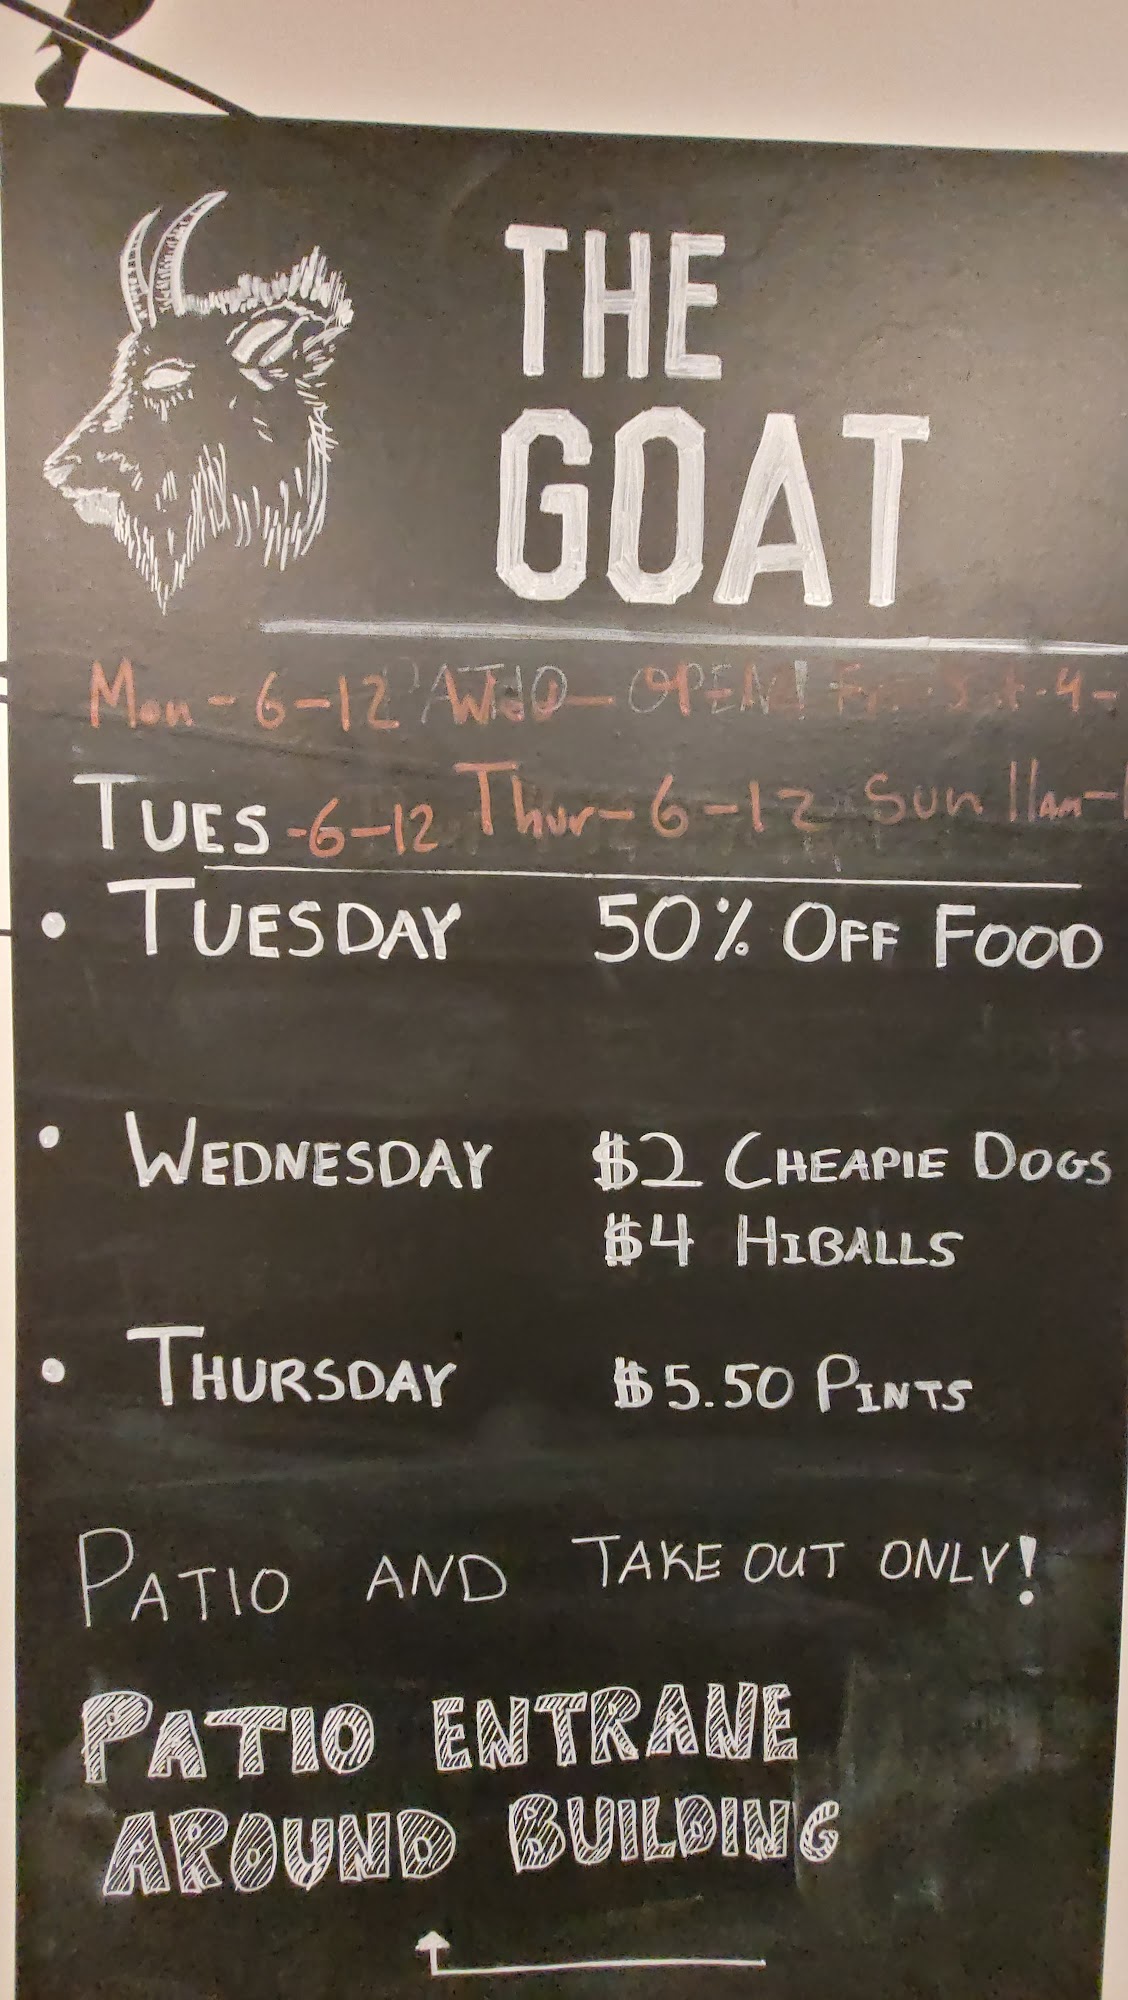 THE
GOAT
Mon - 6 - 12 PATIO OPEN! Wed - Fri - Sat - 4 -
TUES - 6 - 12 Thur - 6 - 12 Sun 11am -
• TUESDAY 50% OFF FOOD
• WEDNESDAY $2 CHEAPIE DOGS
$4 HIBALLS
• THURSDAY $5.50 PINTS
PATIO AND TAKE OUT ONLY!
PATIO ENTRANE
AROUND BUILDING